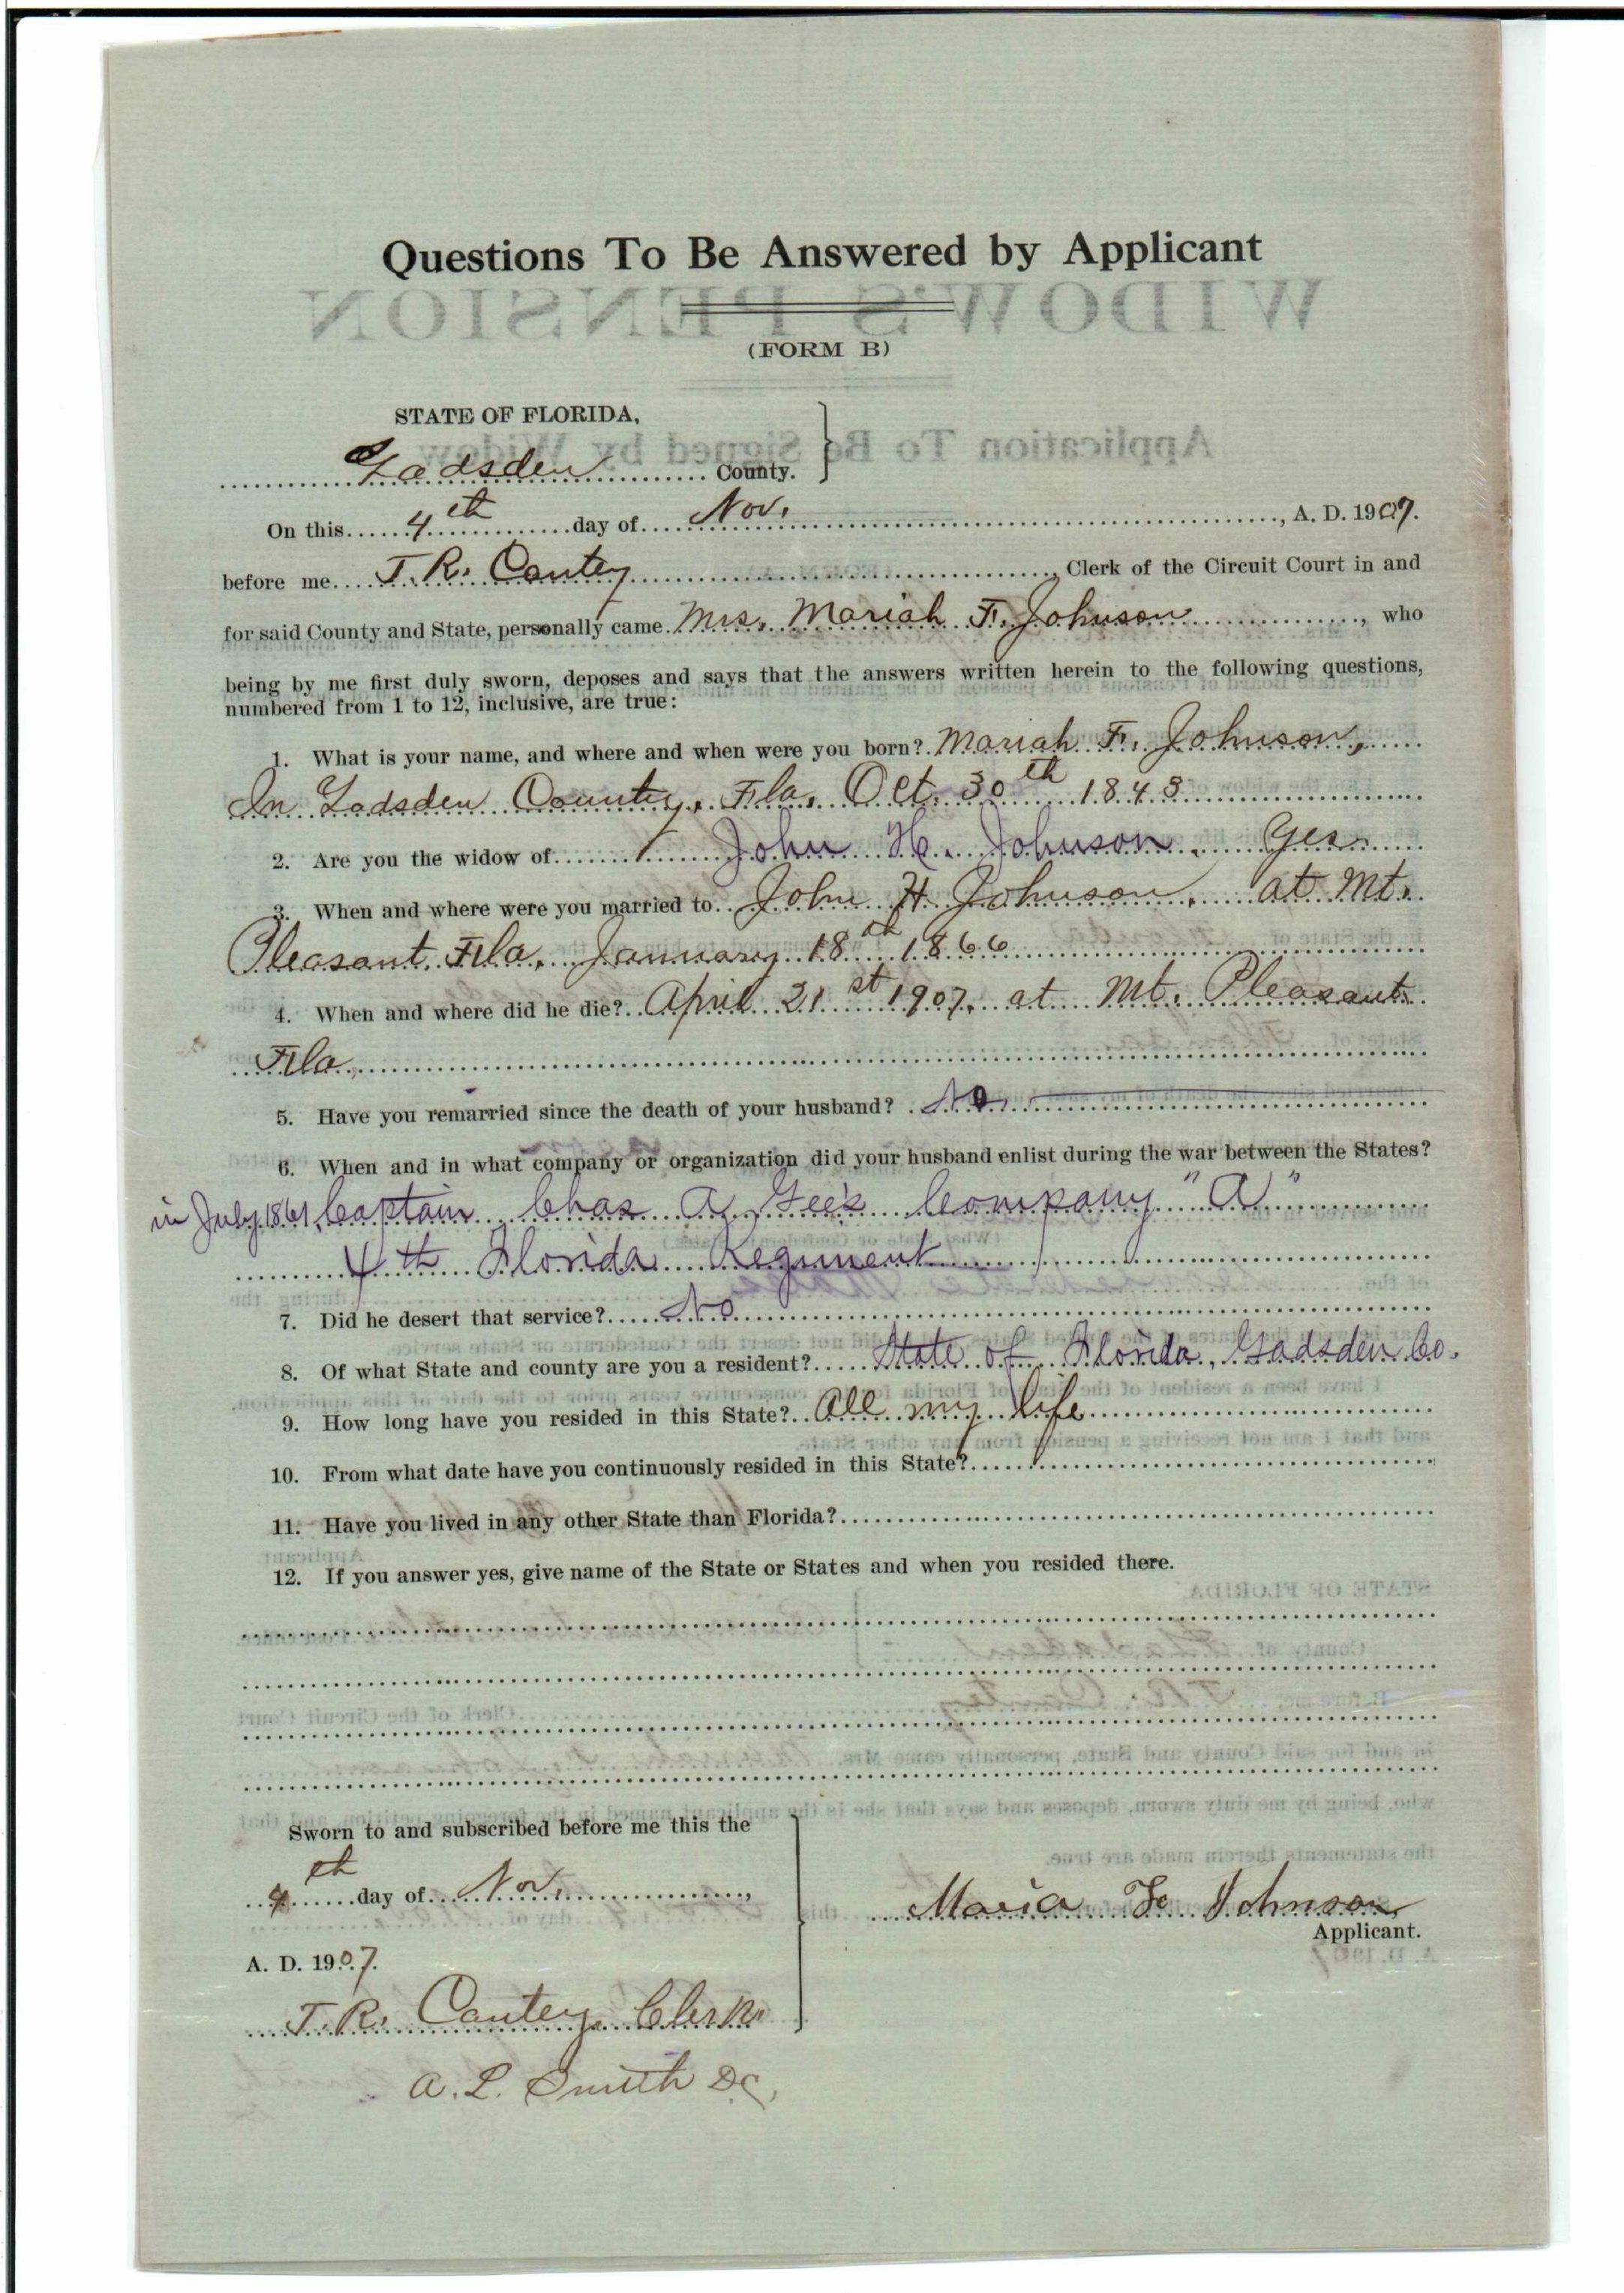 Questions To Be Answered by Applicant
WIDOW'S PENSION
(FORM B)
STATE OF FLORIDA,
Application To Be Signed by Widow
Gadsden County.
On this 4th day of Nov. , A. D. 1907.
before me T. R. Cantey , Clerk of the Circuit Court in and
for said County and State, personally came Mrs. Mariah F. Johnson , who
being by me first duly sworn, deposes and says that the answers written herein to the following questions,
numbered from 1 to 12, inclusive, are true:
1. What is your name, and where and when were you born? Mariah F. Johnson,
In Gadsden County, Fla. Oct. 30th 1843
2. Are you the widow of John H. Johnson. Yes.
3. When and where were you married to John H Johnson, at Mt.
Pleasant, Fla. January 18th 1866
4. When and where did he die? April 21st 1907. at Mt. Pleasant.
Fla.
5. Have you remarried since the death of your husband? No.
6. When and in what company or organization did your husband enlist during the war between the States?
in July 1861 Captain Chas A Gee's Company "A"
4th Florida Regiment
7. Did he desert that service? No
8. Of what State and county are you a resident? State of Florida, Gadsden Co.
9. How long have you resided in this State? All my life
10. From what date have you continuously resided in this State?
11. Have you lived in any other State than Florida?
12. If you answer yes, give name of the State or States and when you resided there.
Sworn to and subscribed before me this the
4th day of Nov. ,
A. D. 1907.
T. R. Cantey, Clerk
A. L. Smith DC,
Maria F Johnson
Applicant.